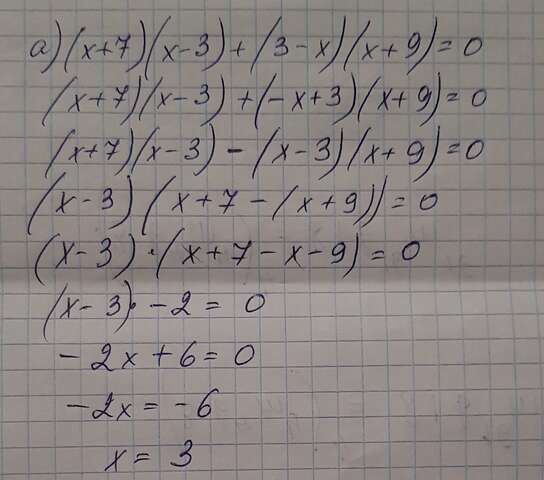 а) (x+7)(x-3)+(3-x)(x+9)=0
(x+7)(x-3)+(-x+3)(x+9)=0
(x+7)(x-3)-(x-3)(x+9)=0
(x-3)(x+7-(x+9))=0
(x-3)·(x+7-x-9)=0
(x-3)·-2=0
-2x+6=0
-2x=-6
x=3